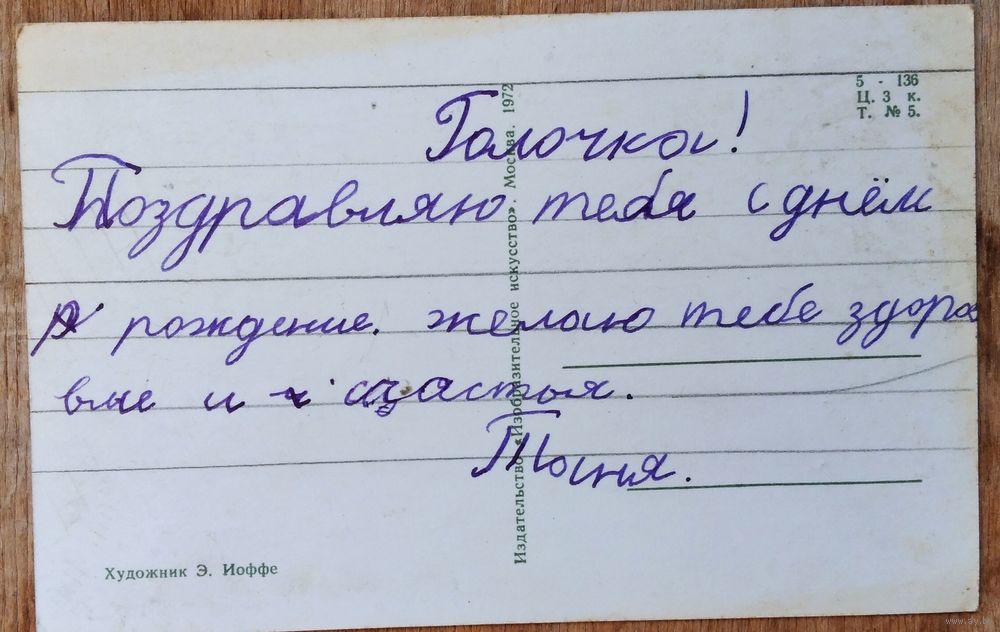 5 - 136
Ц. 3 к.
Т. № 5.
Галочка!
Поздравляю тебя с днём
рождение. желаю тебе здоров
вие и счастья.
Таня.
Издательство «Изобразительное искусство». Москва. 1972
Художник Э. Иоффе
www.ay.by